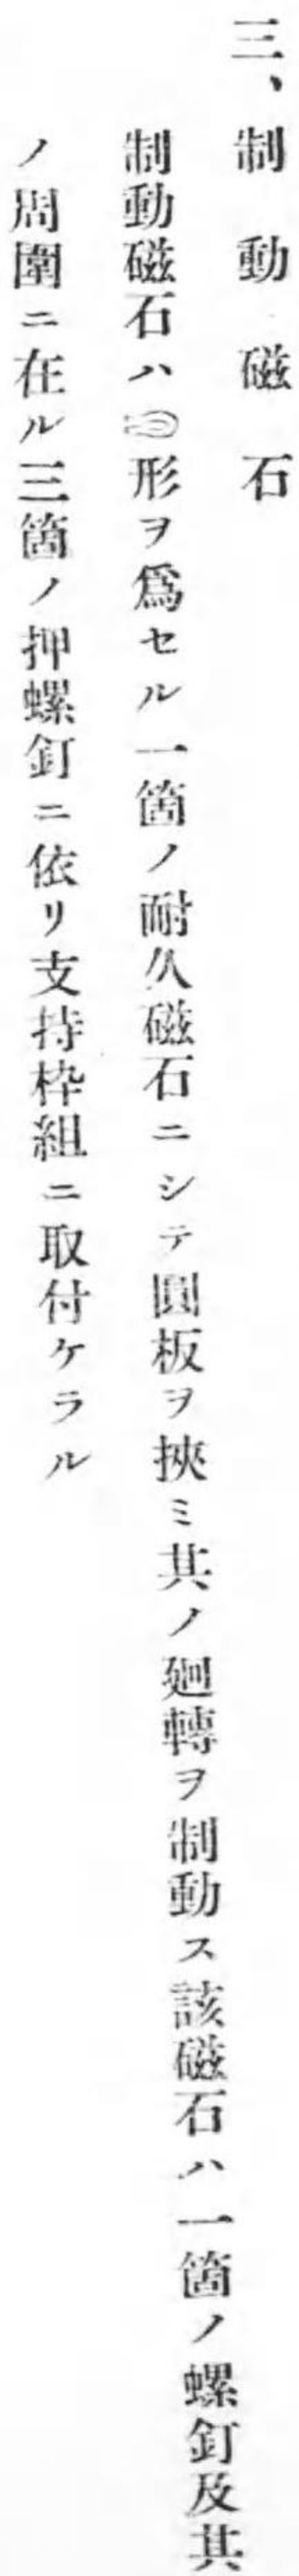 三、制動磁石
制動磁石ハ形ヲ爲セル一箇ノ耐久磁石ニシテ圓板ヲ挾ミ其ノ廻轉ヲ制動ス該磁石ハ一箇ノ螺釘及其
ノ周圍ニ在ル三箇ノ押螺釘ニ依リ支持枠組ニ取付ケラル